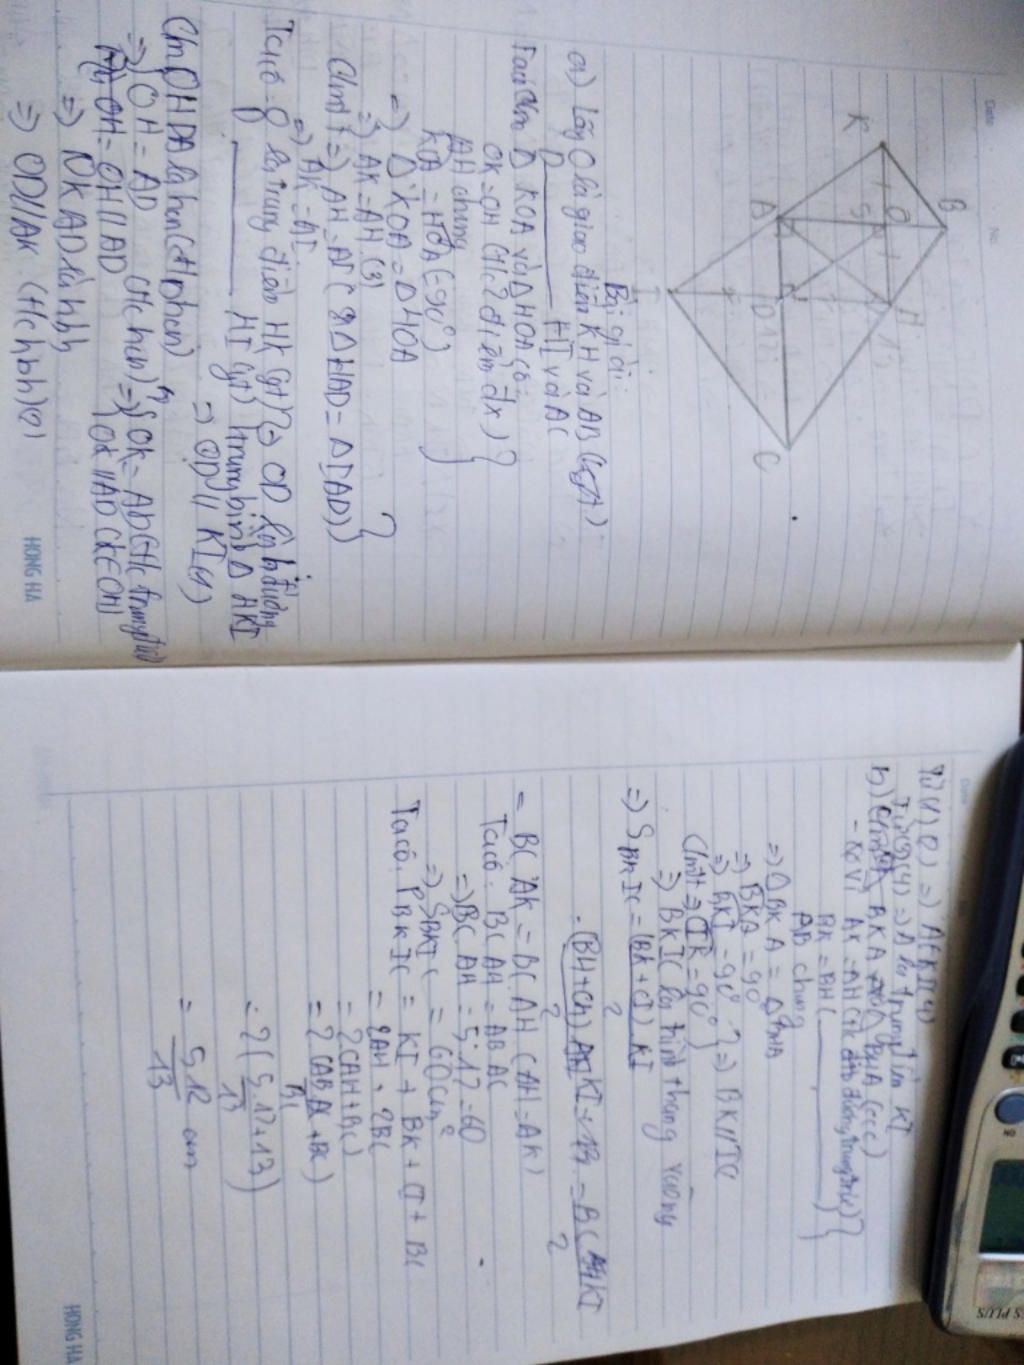 Date
No.
K
B
O
A
H
D
I
C
Bài giải:
a) Lấy O là giao điểm KH và AB (
D HI và AC
Ta có Δ KOA và Δ HOA có:
OK = OH (t/c 2 điểm đx)
AH chung
KOA = HOA (= 90°)
=) Δ KOA = Δ HOA
=) AK = AH (3)
Cmtt =) AH = AI ( Δ HAD = Δ IAD)
=) AK = AI
Ta có: O là trung điểm HK (gt) =) OD là đường
D HI (gt) trung bình Δ HKI
=) OD // KI (1)
Cm OHDA là hcn (dhnb hcn)
=) OH = AD (t/c hcn) =) OK = AD (t/c trung trực)
OH // AD OK // AD (K ∈ OH)
=) OKAD là hbh
=) OD // AK (t/c hbh) (2)
HONG HA
Date
Từ (1) (2) =) A ∈ KI (4)
Từ (3) (4) =) A là trung điểm KI
b) BKA BHA (ccc)
Vì AK = AH (t/c đường trung trực)
BK = BH ( )
AB chung
=) Δ BKA = Δ BHA
=) BKA = 90°
=) BKI = 90° =) BK // IC
Cmtt =) CIK = 90°
=) BKIC là hình thang vuông
=) S BKIC = (BK + CI) KI
2
= (BH + CH) KI = BC . KI
2 2
= BC . AK = BC . AH (AH = AK)
Ta có: BC . AH = AB . AC
=) BC . AH = 5 . 12 = 60
=) S BKIC = 60 cm²
Ta có: P BKIC = KI + BK + CI + BC
= 2AH + 2BC
= 2(AH + BC)
= 2 (AB . AC + BC)
BC
= 2 ( 5 . 12 + 13 )
13
= 512 cm
13
HONG HA
ES PLUS